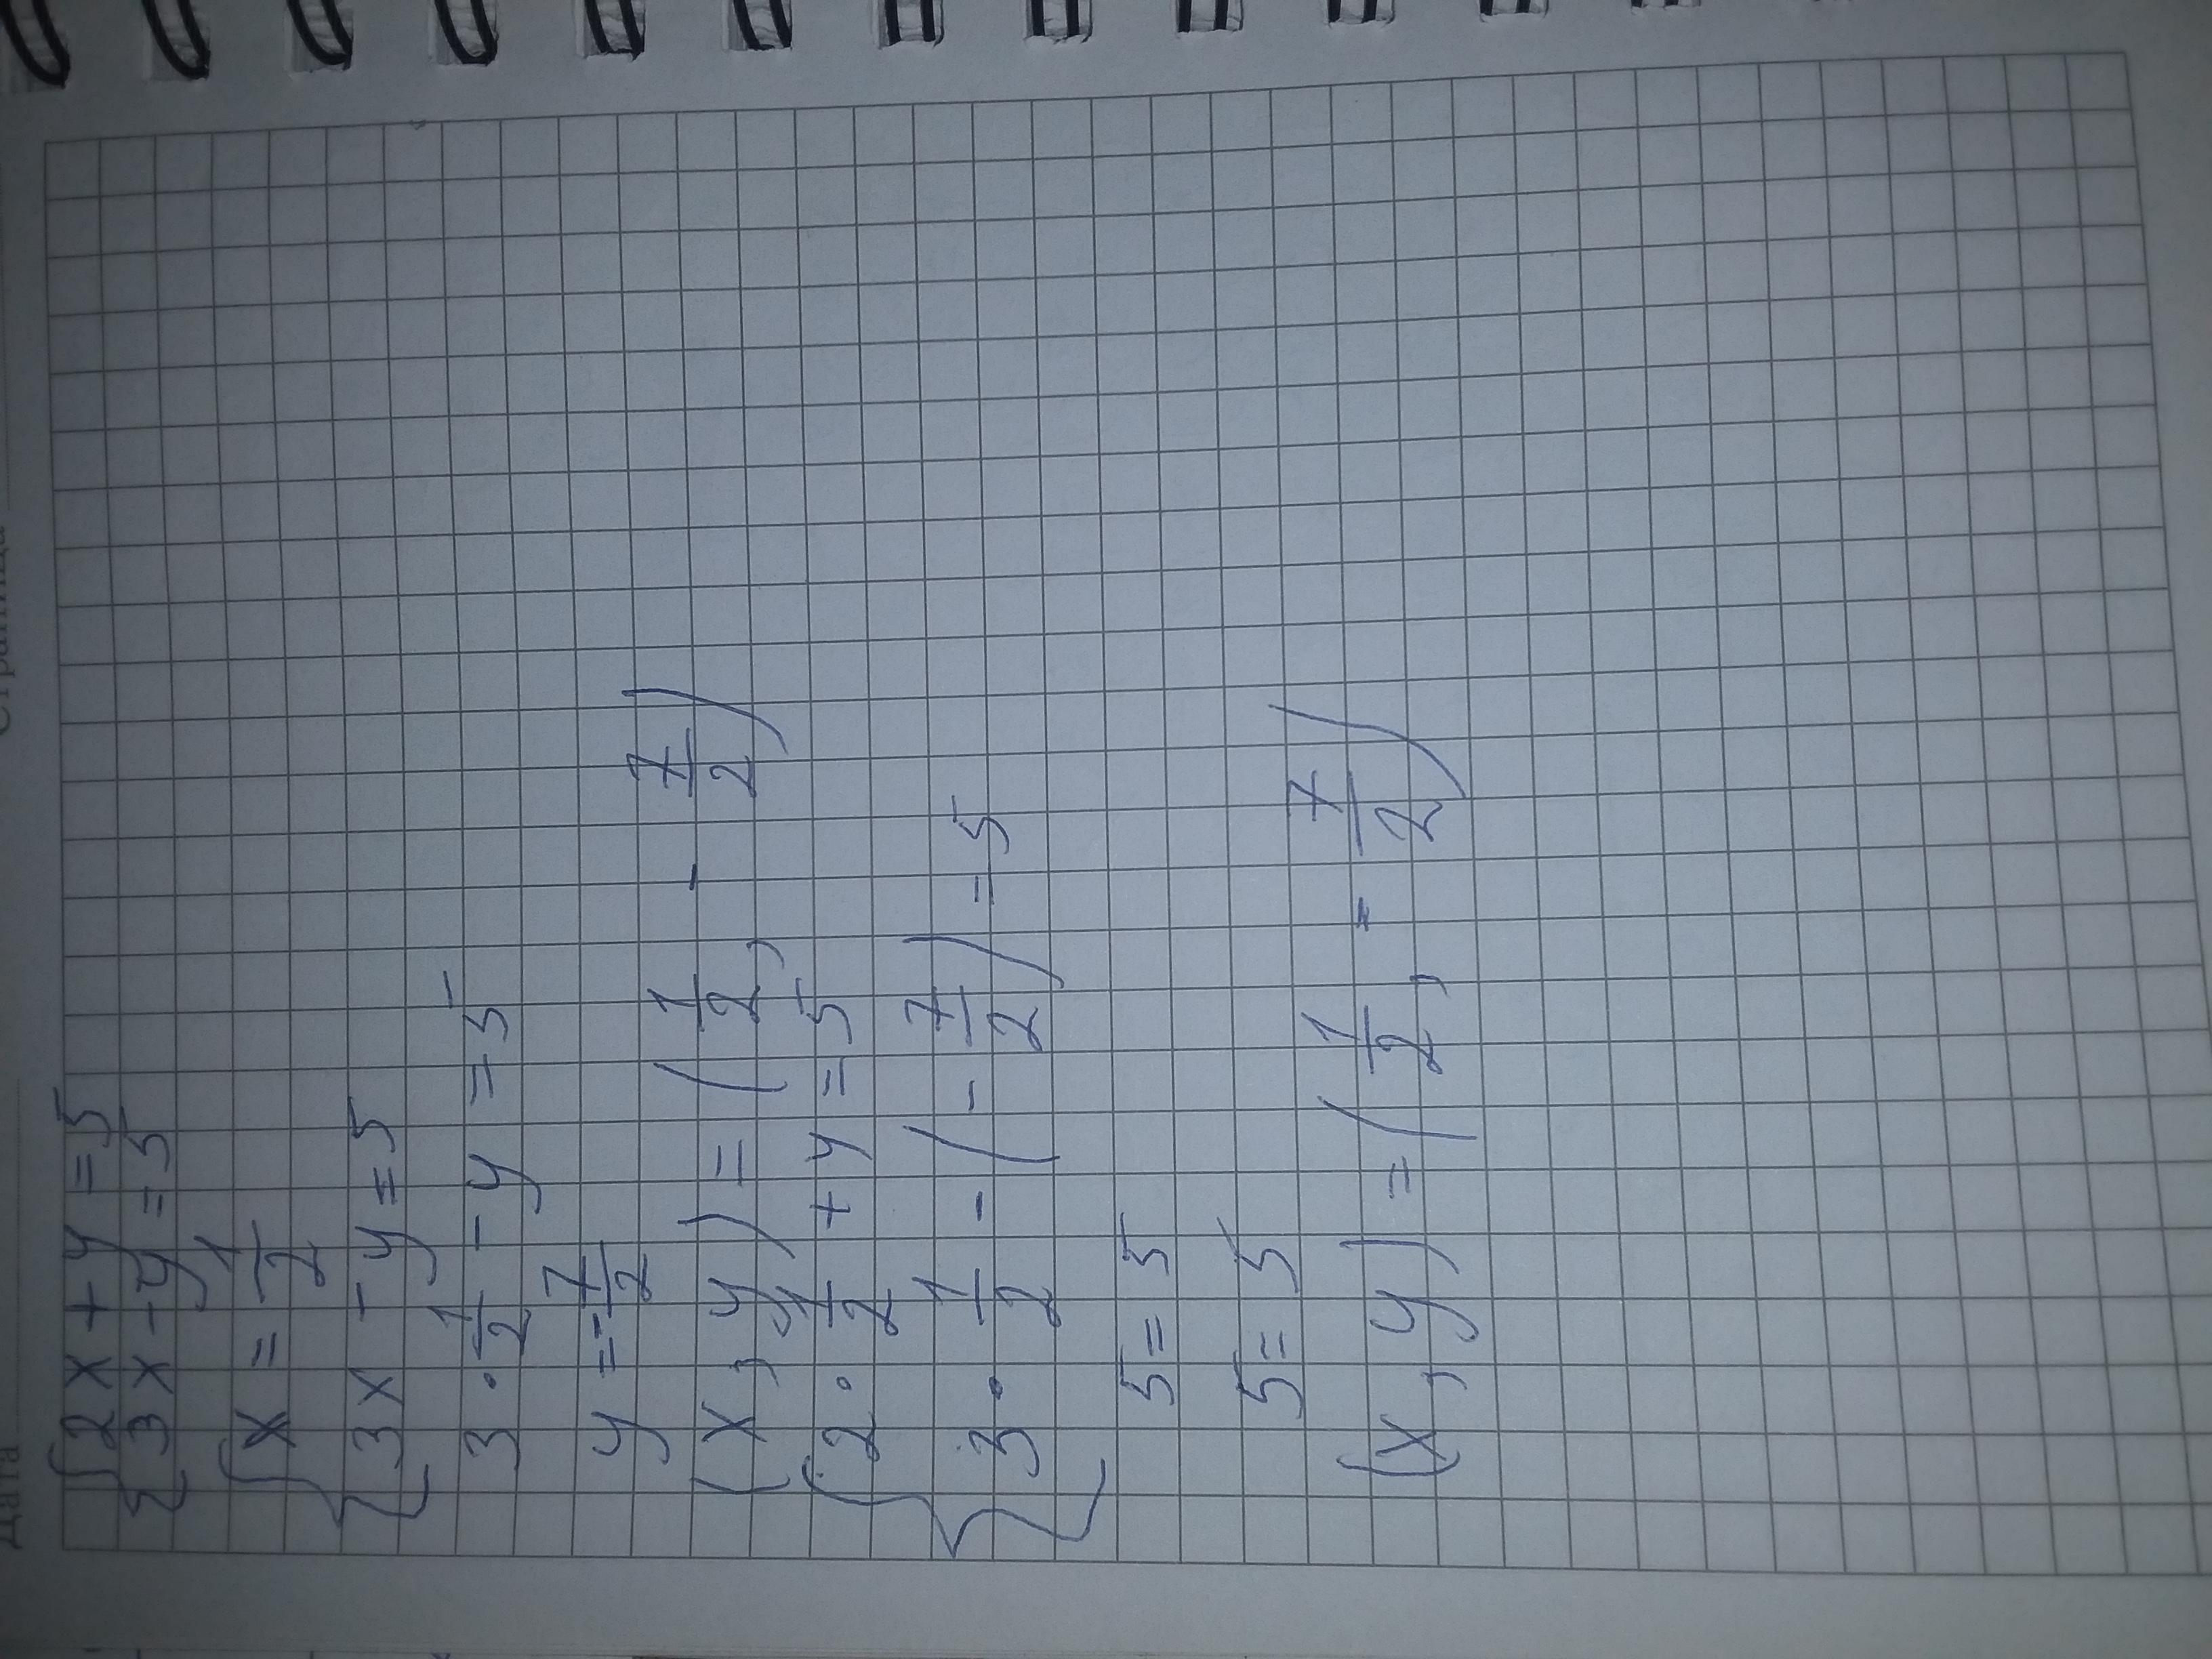 Страница
Дата
{2x + y = 5
{3x - y = 5
{x = 1/2
{3x - y = 5
3 · 1/2 - y = 5
y = - 7/2
(x, y) = (1/2, - 7/2)
{2 · 1/2 + y = 5
{3 · 1/2 - (- 7/2) = 5
5 = 5
5 = 5
(x, y) = (1/2, - 7/2)